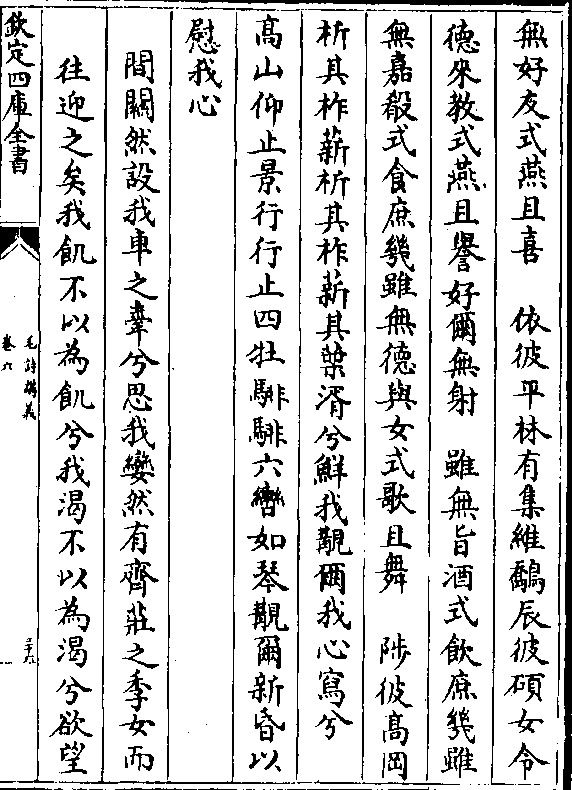 無好友式燕且喜　依彼平林有集維鷮辰彼碩女令
德來教式燕且譽好爾無射　雖無旨酒式飲庶幾雖
無嘉殽式食庶幾雖無德與女式歌且舞　陟彼髙岡
析其柞薪析其柞薪其葉湑兮鮮我覯爾我心寫兮
髙山仰止景行行止四牡騑騑六轡如琴覯爾新昏以
慰我心
間關然設我車之舝兮思我孌然有齊莊之季女而
往迎之矣我飢不以為飢兮我渴不以為渴兮欲望
欽定四庫全書
毛詩講義
卷六
三十六